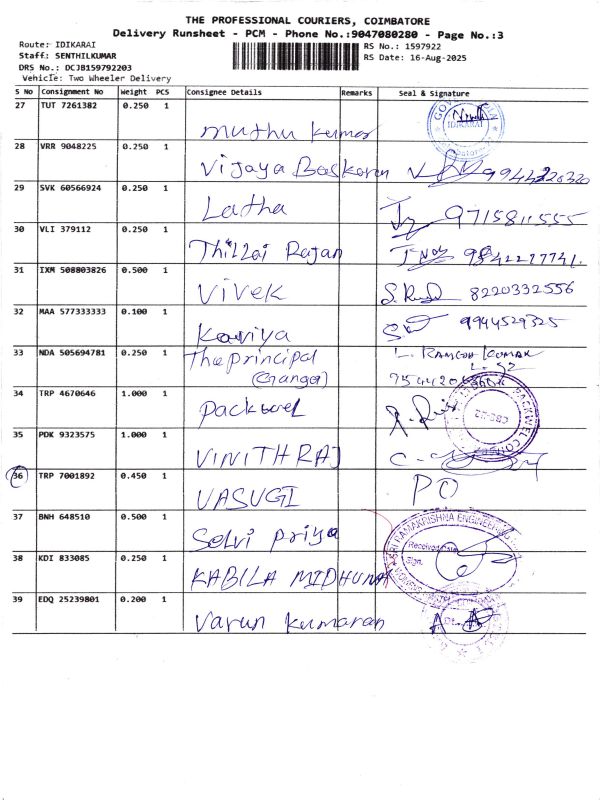 THE PROFESSIONAL COURIERS, COIMBATORE
Delivery Runsheet - PCM - Phone No.:9047080280 - Page No.:3
Route: IDIKARAI
RS No.: 1597922
Staff: SENTHILKUMAR
RS Date: 16-Aug-2025
DRS No.: DCJB159792203
Vehicle: Two Wheeler Delivery
S No Consignment No Weight PCS Consignee Details Remarks Seal & Signature
27 TUT 7261382 0.250 1 Muthu Kumar IDIKARAI
28 VRR 9048225 0.250 1 Vijaya Baskaran
29 SVK 60566924 0.250 1 Latha 9715811555
30 VLI 379112 0.250 1 Thillai Rajan 9842227741.
31 IXM 508803826 0.500 1 Vivek 8220332556
32 MAA 577333333 0.100 1 Kaviya 9944529325
33 NDA 505694781 0.250 1 The principal
(Ganga)
34 TRP 4670646 1.000 1 Packwel
35 PDK 9323575 1.000 1 VINITH RAJ
36 TRP 7001892 0.450 1 VASUGI PO
37 BNH 648510 0.500 1 Selvi priya
SRI RAMAKRISHNA ENGINEERING
Received Date
Sign.
38 KDI 833085 0.250 1 KABILA MIDHUNA
39 EDQ 25239801 0.200 1 Varun Kumaran